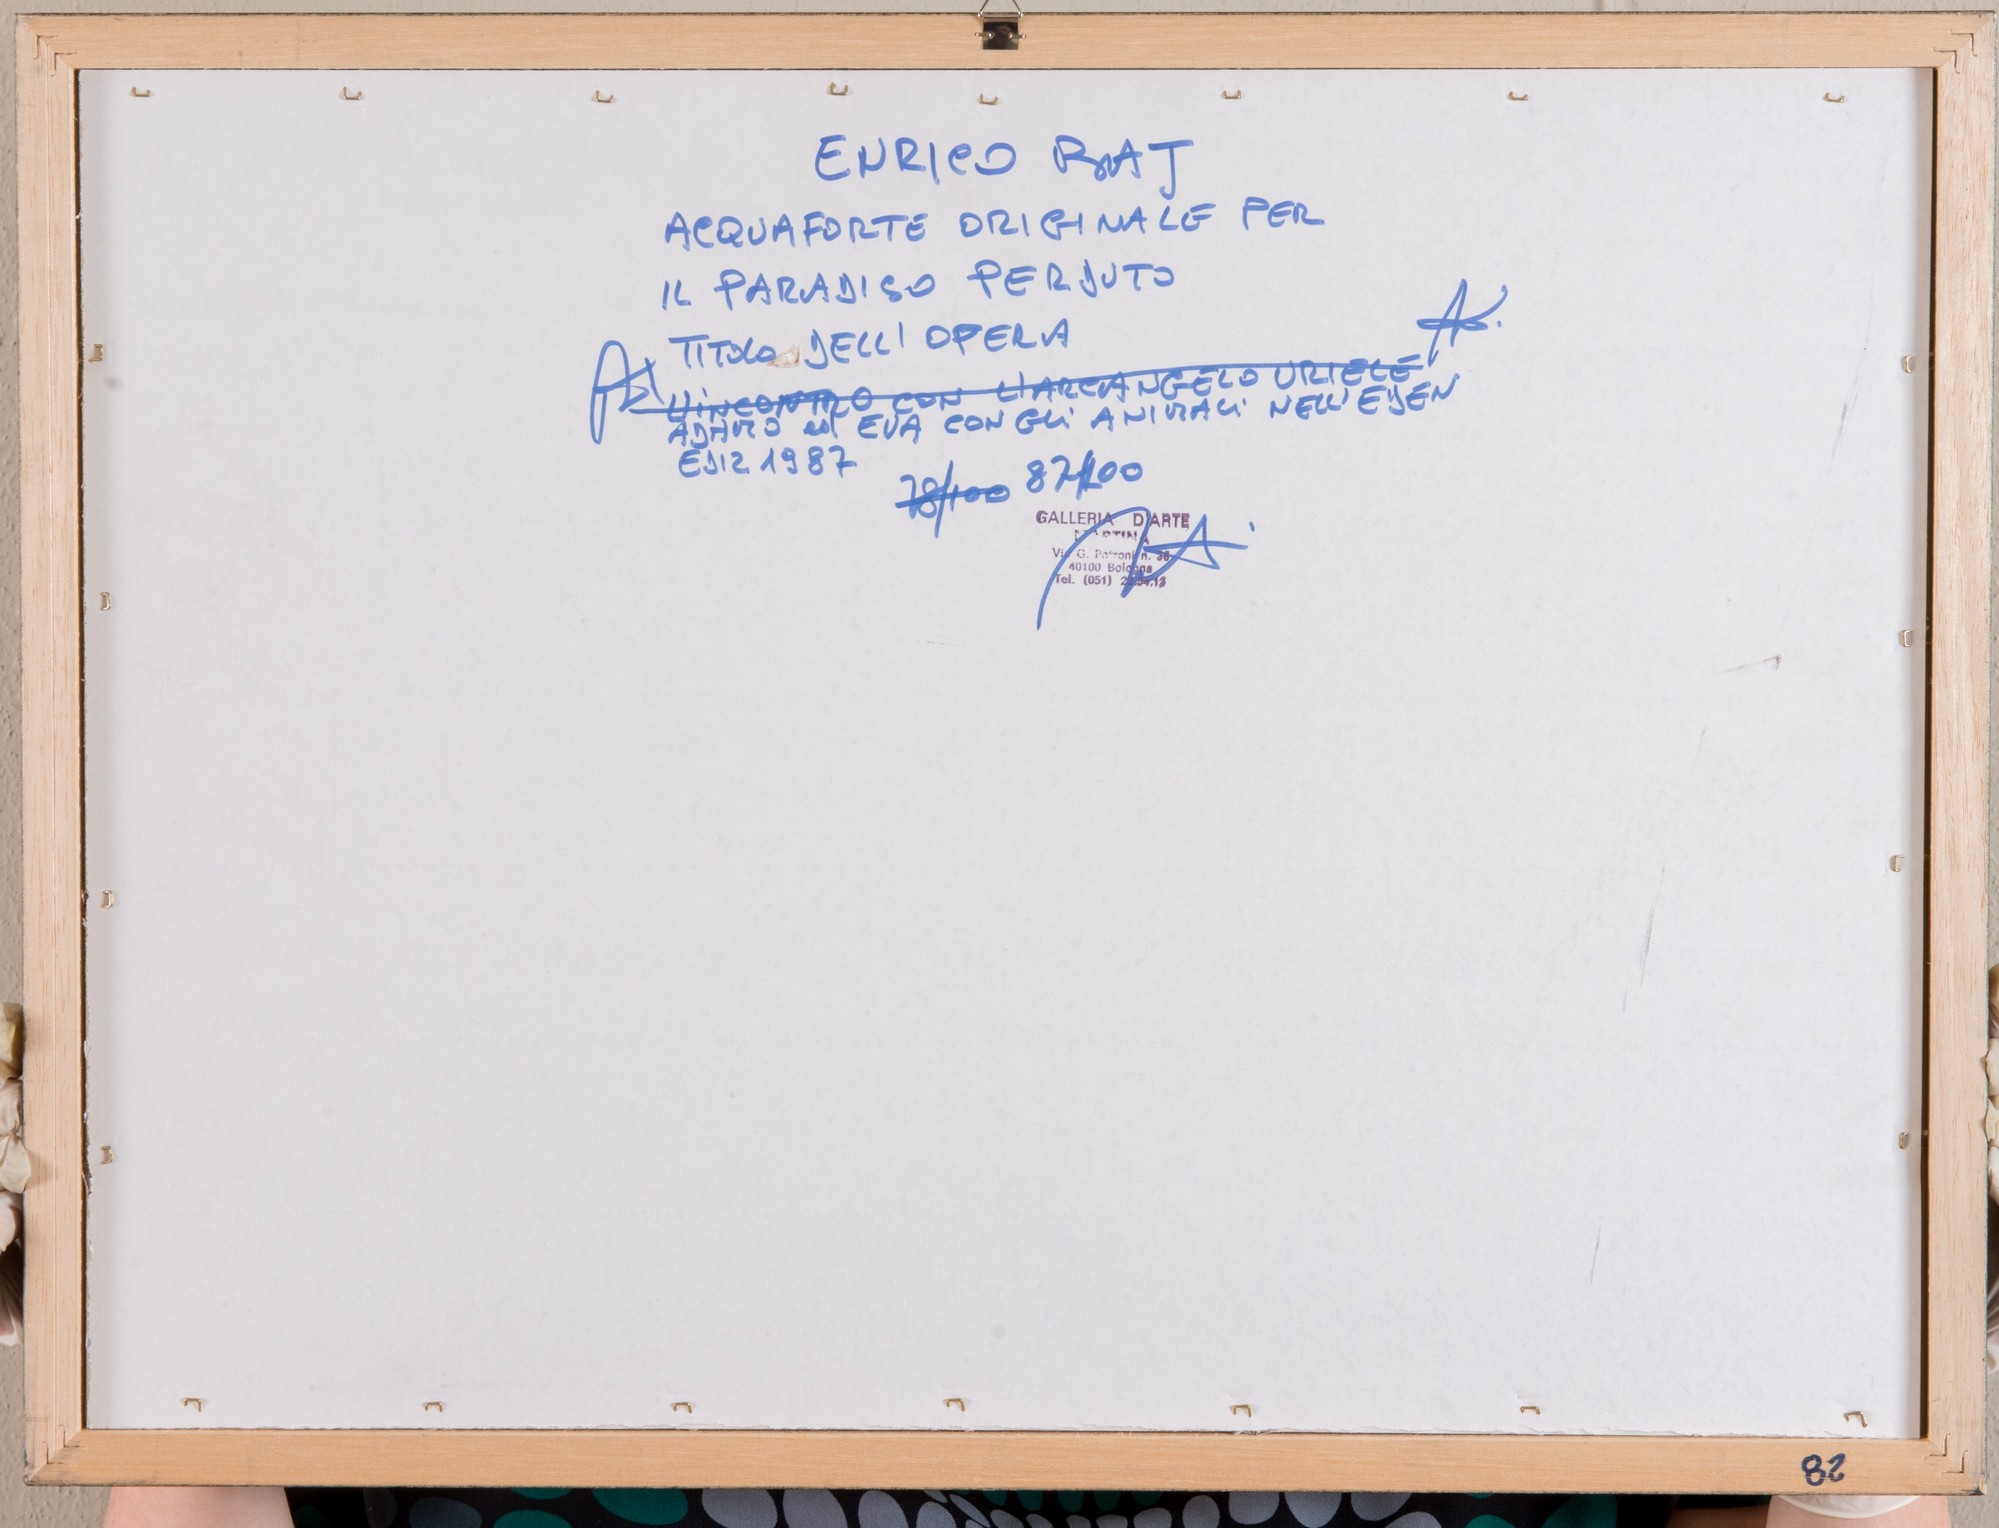 ENRICO BAJ
ACQUAFORTE ORIGINALE PER
IL PARADISO PERDUTO
TITOLO DELL'OPERA
L'INCONTRO CON L'ARCANGELO URIELE
ADAMO ed EVA CON GLI ANIMALI NELL'EDEN
EDIZ 1987
78/100 87/100
GALLERIA D'ARTE
MARTINA
Via G. Petroni n. 36
40100 Bologna
Tel. (051)
82